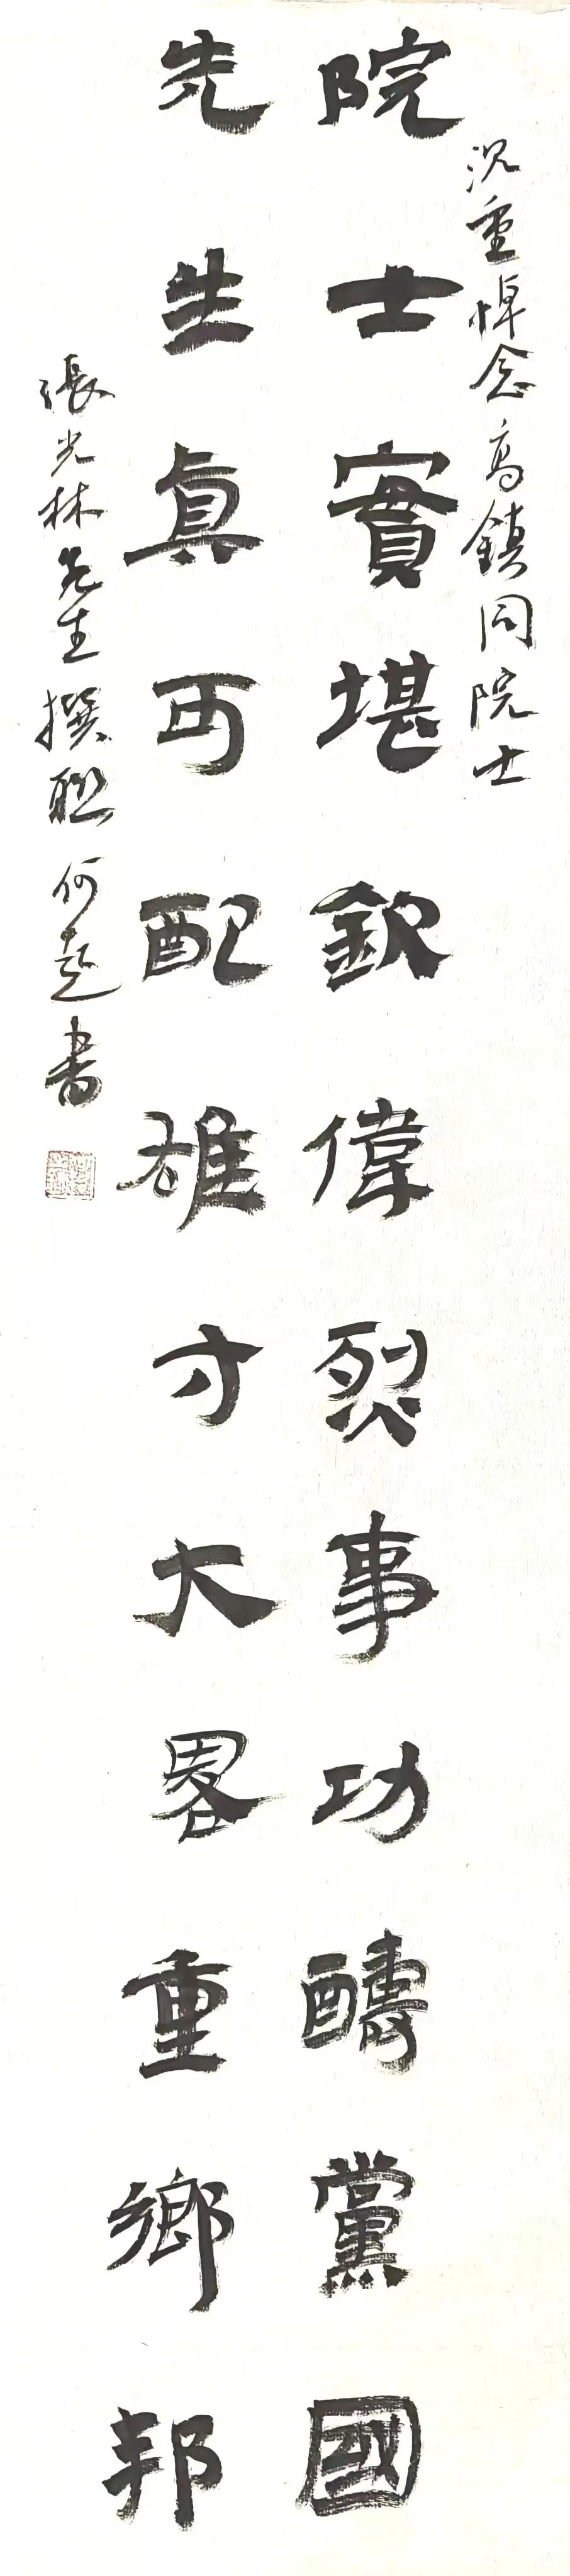 沉重悼念高鎮同院士
院士實堪欽偉烈事功醻黨國
先生真可配雄才大畧重鄉邦
張光林先生撰聯 何 書